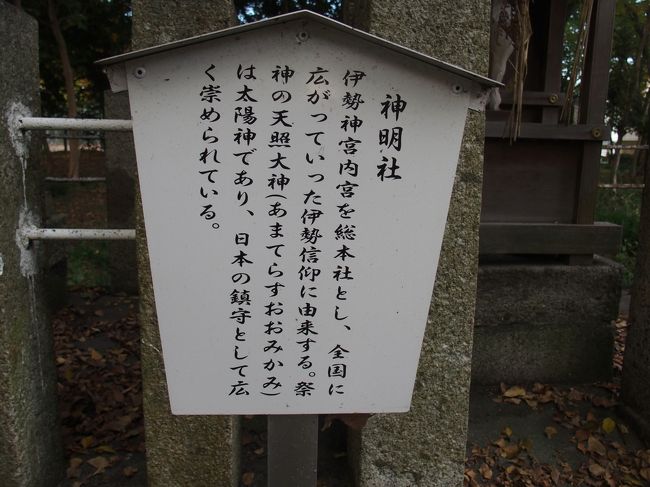 神明社
伊勢神宮内宮を総本社とし、全国に
広がっていった伊勢信仰に由来する。祭
神の天照大神(あまてらすおおみかみ)
は太陽神であり、日本の鎮守として広
く崇められている。